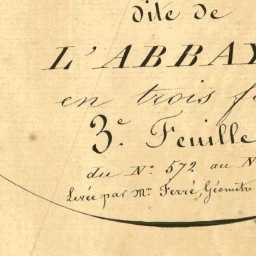 dite de
L'ABBAY
en trois f
3e. Feuille
du No. 572 au N
Levée par Mr. Ferré, Géomètre